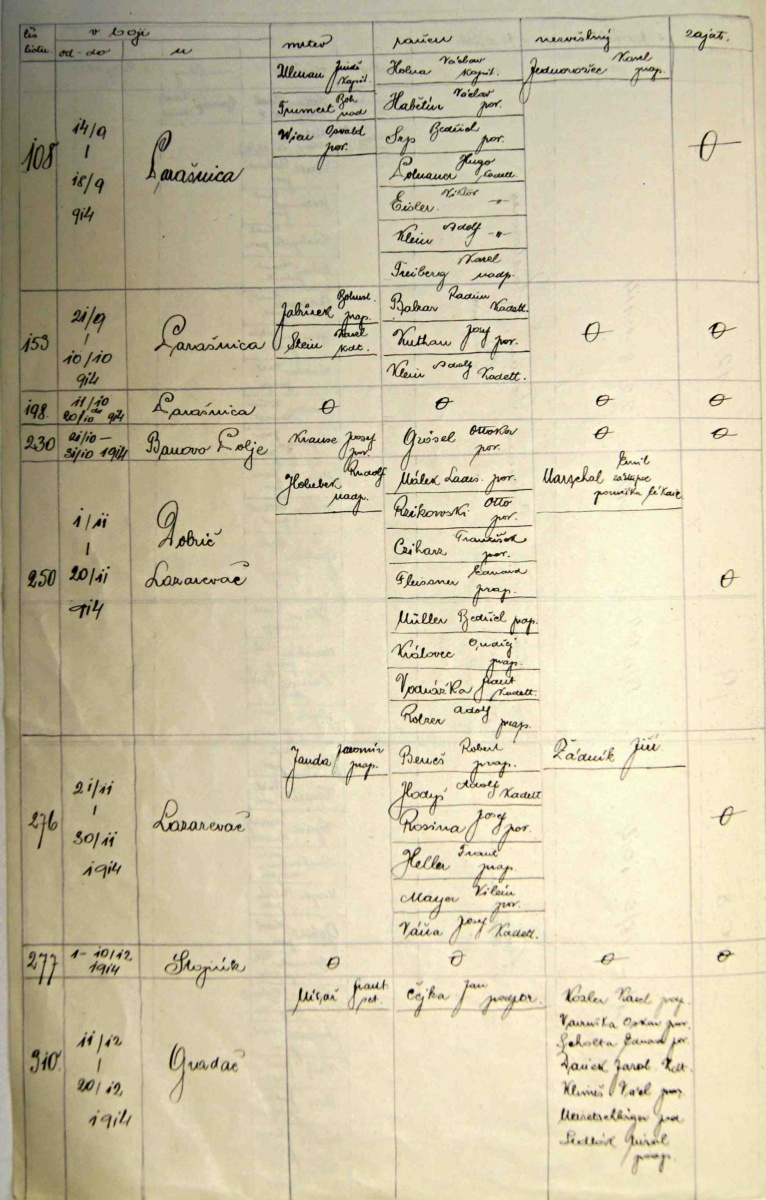 čís. listu. v boji mrtev raněn nezvěstný zajat.
od - do u
108 14/9 - 18/9 914 Parašnica
Ulman Jindř. kapit.
Trumert Boh. nad
Wien Osvald por.
Holna Václav kapit.
Habětín Václav por.
Srp Bedřich por.
Lobnauer Hugo Kadett.
Eisler Viktor -"-
Klein Adolf -"-
Freiberg Karel nadp.
Jednorožec Karel prap.
0
153 21/9 - 10/10 914 Parašnica
Jabůrek Bohusl. prap.
Stein Karel Kdt.
Balcar Radim Kadett.
Kuthan Josef por.
Klein Adolf Kadett.
0 0
198 11/10 do 20/10 914 Parašnica 0 0 0 0
230 21/10 - 31/10 1914 Banovo Polje Krause Josef por. Grösel Ottokar por. 0 0
250 1/11 - 20/11 914 Dobrič
Lazarevač
Holubek Rudolf nadp.
Málek Ladis. por.
Reikowski Otto por.
Cziharz František por.
Fleissner Eduard prap.
Müller Bedřich prap.
Královec Ondřej prap.
Vodnářka Frant Kadett.
Rotrer Adolf prap.
Marschal Emil zástupce
0
276 21/11 - 30/11 1914 Lazarevač
Janda Jaromír prap.
Beneš Robert prap.
Hodyš Adolf Kadett
Rosina Josef por.
Heller Frant prap.
Mayer Vilém por.
Váňa Josef Kadett.
Žádník Jiří.
0
277 1 - 10/12 1914 Stojník 0 0 0 0
310. 11/12 - 20/12 1914 Gradač
Frant.
Čejka Jan podpor.
Kosler Karel prap.
Vavruška Oskar por.
Scholta Eduard por.
Jarosl. Kdt.
Klimeš Karel prap.
Sedlák prap.